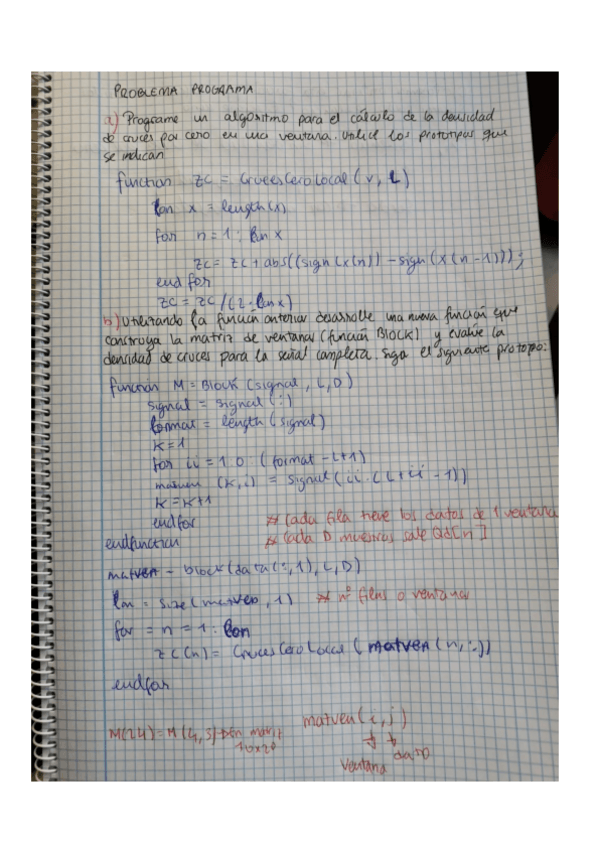 PROBLEMA PROGRAMA
a) Programe un algoritmo para el cálculo de la densidad
de cruces por cero en una ventana. Utilice los prototipos que
se indican
function zc = CrucesCeroLocal (v, L)
lon x = length(x)
for n = 1 : lon x
zc = zc + abs((sign(x(n)) - sign(x(n-1)));
end for
zc = zc /(2 · lon x)
b) Utilizando la función anterior desarrolle una nueva función que
construya la matriz de ventanas (función BLOCK) y evalue la
densidad de cruces para la señal completa. Siga el siguiente prototipo:
function M = Block (signal, L, D)
signal = signal (:)
format = length (signal)
k = 1
for ii = 1:D (format - L+1)
(k, i) = signal (ii: (L+ii - 1))
k = k+1
endfor
** Cada fila tiene los datos de 1 ventana
endfunction
** Cada D muestras sale Qd[n]
matven = block (data(:,1), L, D)
lon = size (matven, 1) ** nº filas o ventanas
for = n = 1 : lon
zc(n) = CrucesCeroLocal (matven (n,:))
endfor
M(24) = M(4,3) en matriz
10x20
matven (i, j)
ventana dato